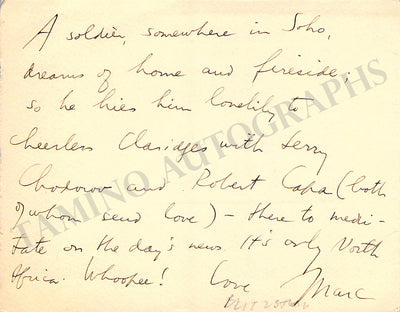 A soldier, somewhere in Soho,
dreams of home and fireside;
so he hies him lonelily to
cheerless Claridges with Jerry
Chodorov and Robert Capa (both
of whom send love) – there to medi-
tate on the day's news. It's only North
Africa. Whoopee! Love Marc
BLITZSTEIN
TAMINO AUTOGRAPHS